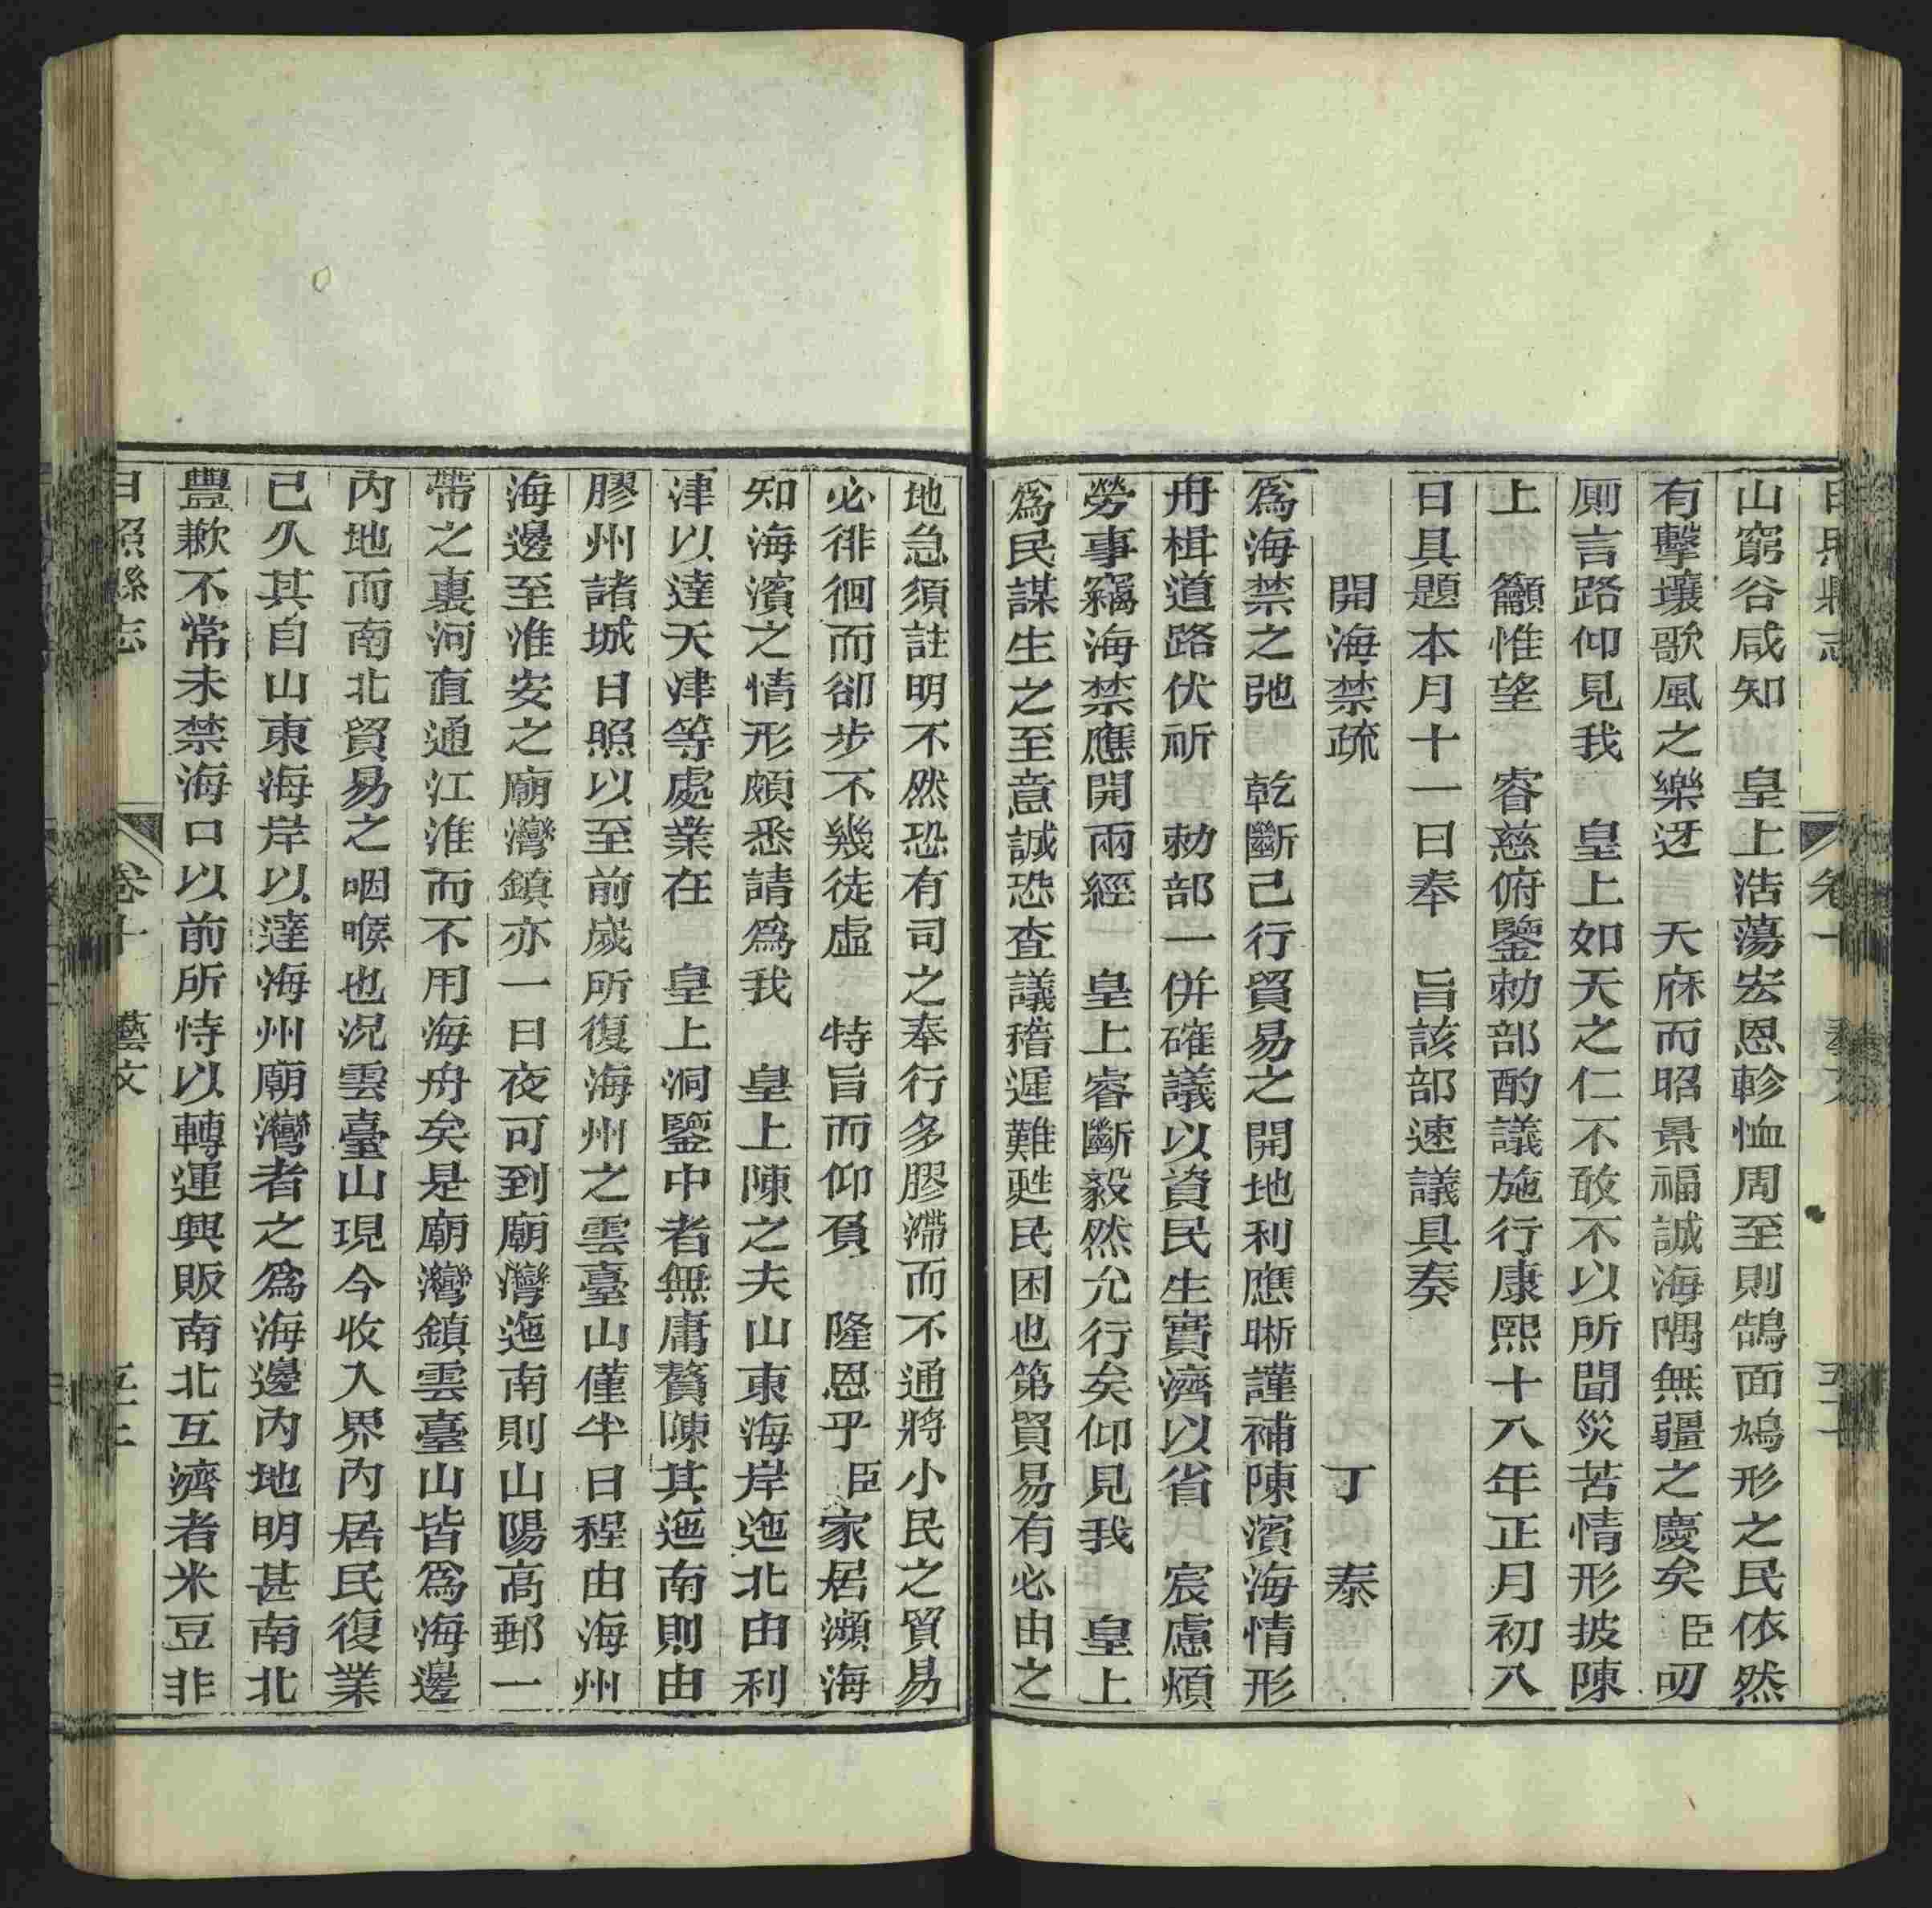 日照縣志 卷十 藝文
山窮谷咸知 皇上浩蕩宏恩軫恤周至則鵠面鳩形之民依然
有擊壤歌風之樂迓 天庥而昭景福誠海隅無疆之慶矣臣叨
厠言路仰見我 皇上如天之仁不敢不以所聞災苦情形披陳
上籲惟望 睿慈俯鑒勅部酌議施行康熙十八年正月初八
日具題本月十一日奉 旨該部速議具奏
開海禁疏 丁泰
爲海禁之弛 乾斷已行貿易之開地利應晰謹補陳濱海情形
舟楫道路伏祈 勅部一併確議以資民生實濟以省 宸慮煩
勞事竊海禁應開兩經 皇上睿斷毅然允行矣仰見我 皇上
爲民謀生之至意誠恐查議稽遲難甦民困也第貿易有必由之
地急須註明不然恐有司之奉行多膠滯而不通將小民之貿易
必徘徊而卻步不幾徒虛 特旨而仰負 隆恩乎臣家居瀕海
知海濱之情形頗悉請爲我 皇上陳之夫山東海岸迤北由利
津以達天津等處業在 皇上洞鑒中者無庸贅陳其迤南則由
膠州諸城日照以至前歲所復海州之雲臺山僅半日程由海州
海邊至淮安之廟灣鎮亦一日夜可到廟灣迤南則山陽高郵一
帶之裏河直通江淮而不用海舟矣是廟灣鎮雲臺山皆爲海邊
內地而南北貿易之咽喉也況雲臺山現今收入界內居民復業
已久其自山東海岸以達海州廟灣者之爲海邊內地明甚南北
豐歉不常未禁海口以前所恃以轉運興販南北互濟者米豆非
日照縣志 卷十 藝文